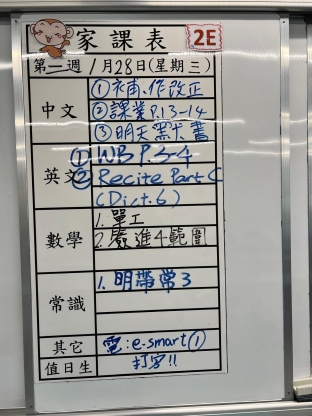 家課表 2E
第一週 1月28日(星期三)
中文 ①補、作改正
②課業P.13-14
③明天默書
英文 ① WB P.3-4
② Recite Part C
(Dict.6)
數學 1. 單工
2. 進4範圍
常識 1. 明帶常3
其它 電:e-smart①
值日生 打字!!